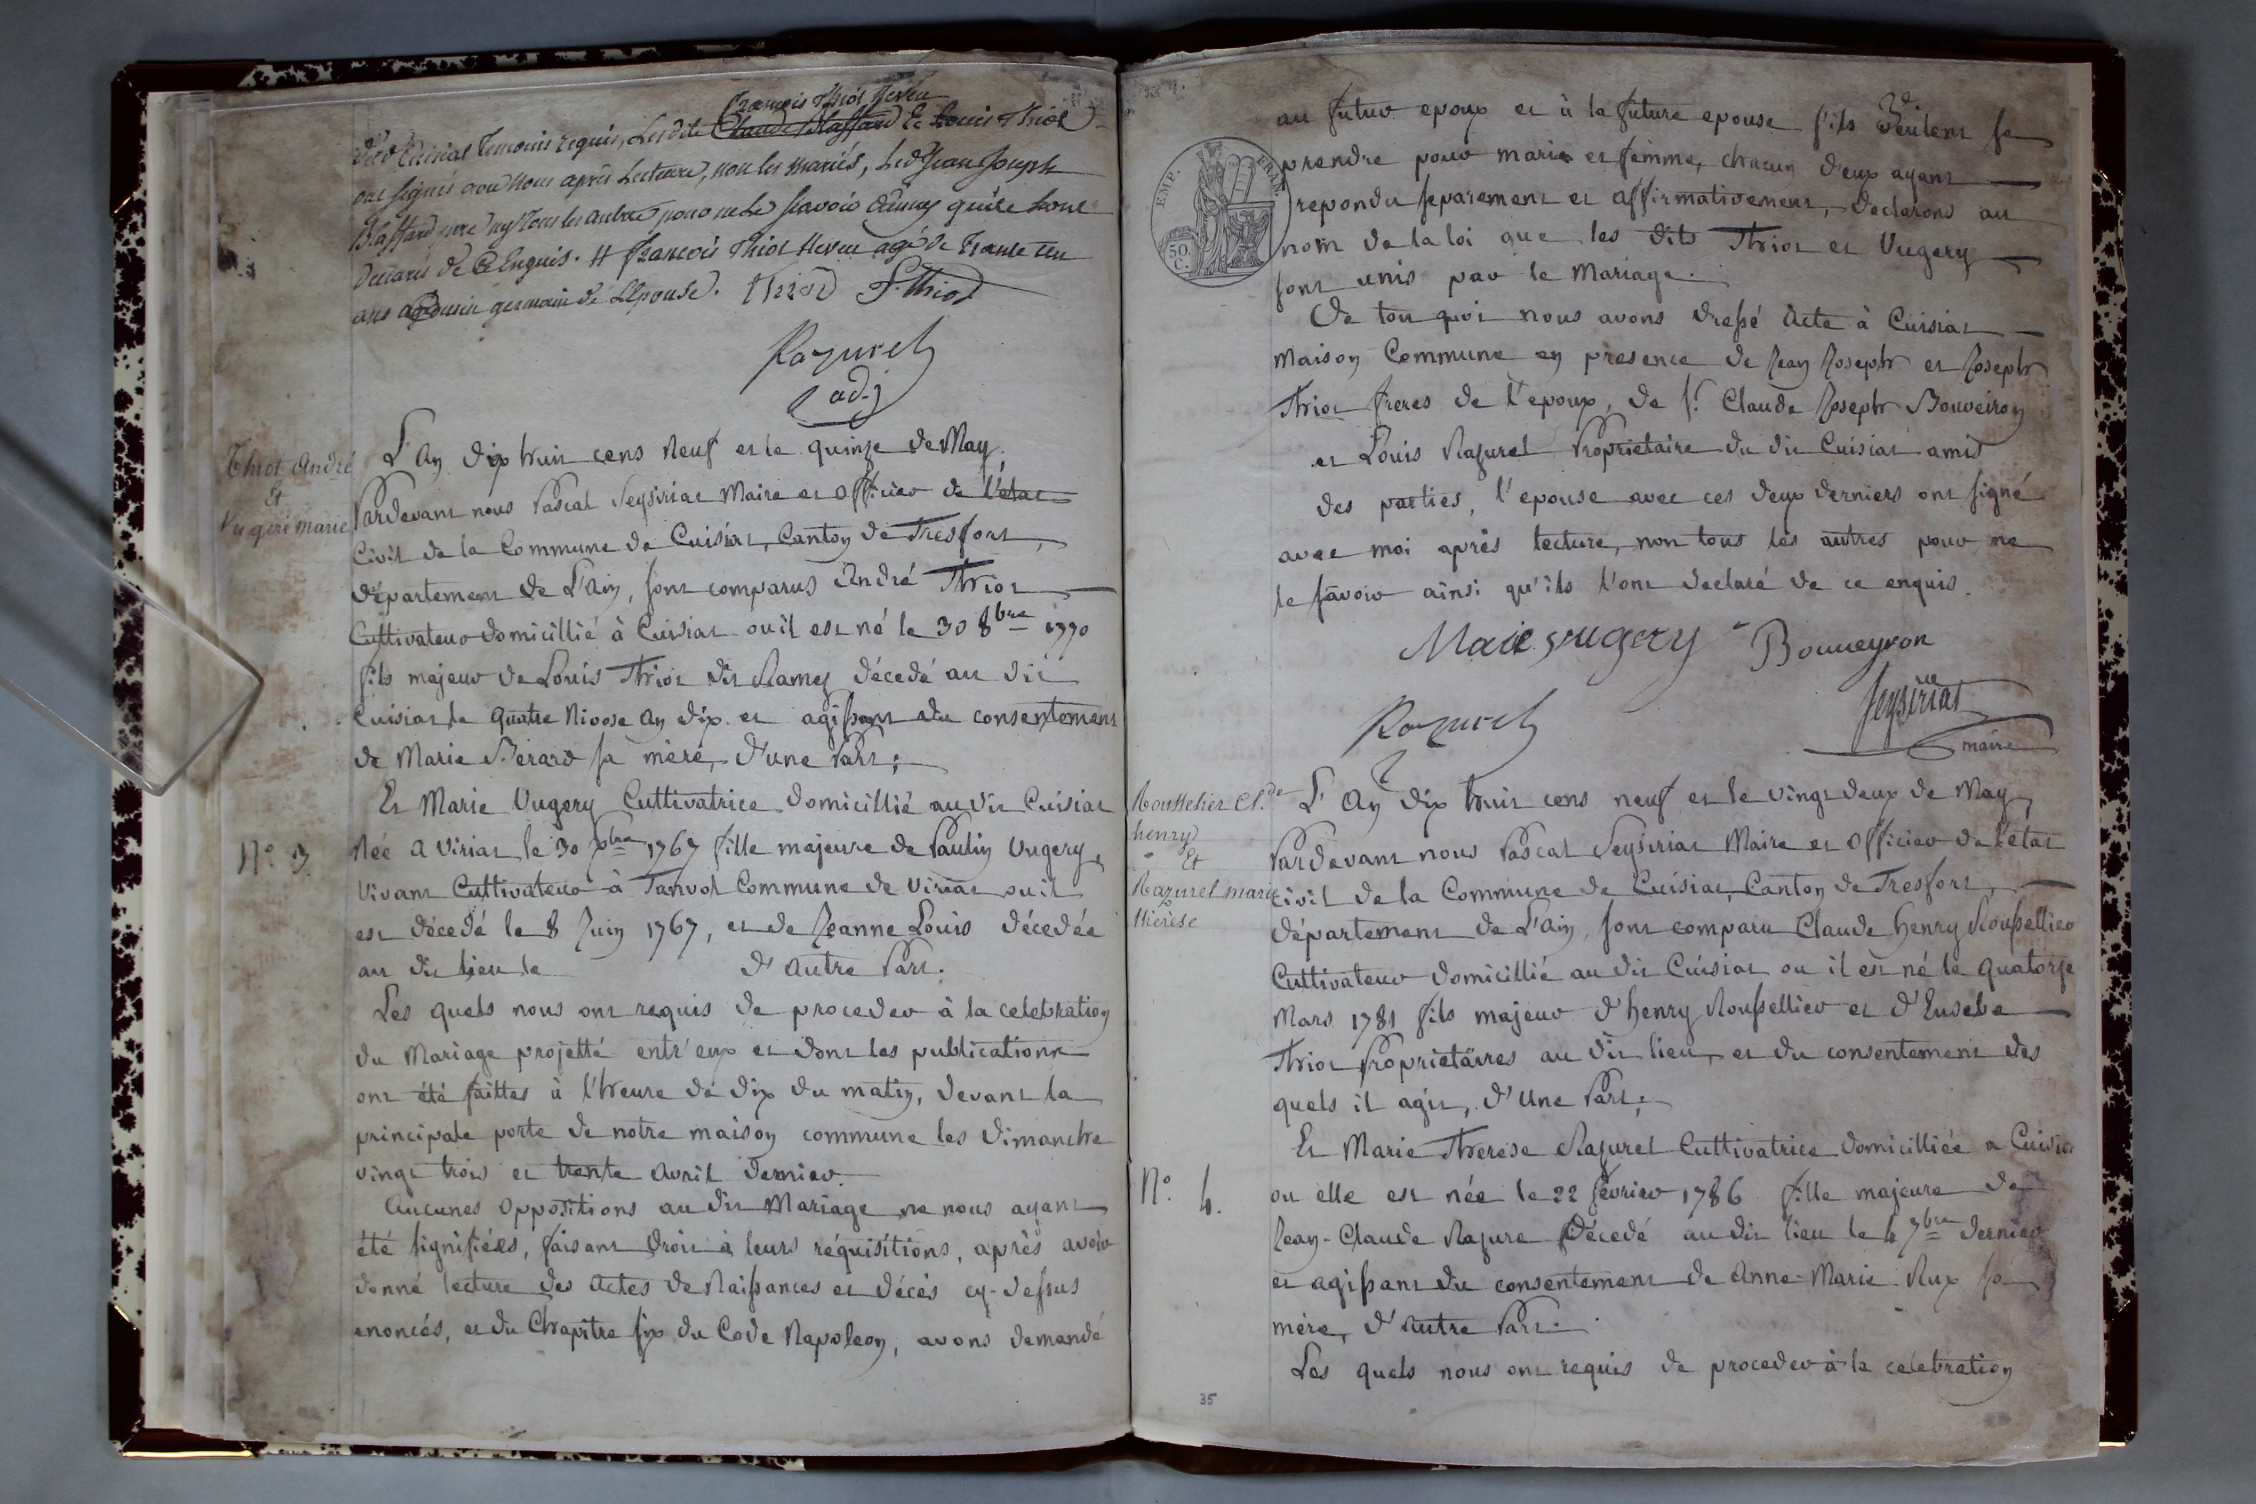 François Thiot Neveu
du d Cuisiat Temoins requis, Lesdits Claude Blaffard Et Louis Thiot
ont signés avec Nous après Lecture, non les mariés, Led Jean Joseph
Blaffard pere ny Tous les autres pour ne le sçavoir ainsy qu'ils l'ont
declarés de ce Enquis. # François Thiot Neveu agé de Trante un
ans cousin germain de L'Epouse. Thiod F. Thiod
Razurel
adj
Thiot André
Et
Vugeri marie
N.o 3.
L'An dix huit cens Neuf et le quinze de May,
Pardevant nous Pascal Seysiriat Maire et Officier de l'état
Civil de la Commune de Cuisiat, Canton de Tresfort,
département de L'Ain, sont comparus André Thiot
Cultivateur domicillié à Cuisiat ou il est né le 30 8bre 1770
fils majeur de Louis Thiot dit Ramey décedé au dit
Cuisiat le quatre Nivose an dix et agissant du consentement
de Marie Berard sa mère, d'une Part;
Et Marie Vugery Cultivatrice domicillié au dit Cuisiat
Née a Viriat le 30 Xbre 1767 fille majeure de Paulin Vugery,
Vivant Cultivateur à Tanvol Commune de Viriat ou il
est décedé le 8 Juin 1767, et de Jeanne Louis décedée
au dit lieu le d'autre Part.
Les quels nous ont requis de proceder à la celebration
du Mariage projetté entr'eux et dont les publications
ont été faittes à l'heure de dix du matin, devant la
principale porte de notre maison commune les dimanche
vingt trois et trente avril dernier.
Aucunes Oppositions au dit Mariage ne nous ayant
été signifiées, faisant droit à leurs réquisitions, après avoir
donné lecture des Actes de Naissances et décès cy-dessus
enoncés, et du Chapitre six du Code Napoleon, avons demandé
EMP. FRAN.
50.
C.
au futur epoux et à la future epouse s'ils veulent se
prendre pour marie et femme, chacun d'eux ayant
repondu separement et affirmativement, declarons au
nom de la loi que les dits Thiot et Vugery
sont unis par le Mariage.
De tou quoi nous avons dressé Acte à Cuisiat
Maison Commune en presence de Jean Joseph et Joseph
Thiot freres de l'epoux, de sr. Claude Joseph Bouveiron
et Louis Razurel Proprietaire du dit Cuisiat amis
des parties, l'epouse avec ces deux derniers ont signé
avec moi après lecture, non tous les autres pour ne
le savoir ainsi qu'ils l'ont declaré de ce enquis.
Marie vugery Bouveyron
Razurel Seysiriat
maire
Rousselier Cl.de
henry
Et
Razurel marie
thérèse
N.o 4.
L'An dix huit cens neuf et le vingt deux de May,
Pardevant nous Pascal Seysiriat Maire et Officier de l'état
civil de la Commune de Cuisiat, Canton de Tresfort,
département de L'Ain, sont comparu Claude henry Roussellier
Cultivateur domicillié au dit Cuisiat ou il est né le quatorze
Mars 1781 fils majeur d'henry Roussellier et d'Eusebe
Thiot Proprietaires au dit lieu et du consentement des
quels il agit, d'Une Part;
Et Marie Therese Razurel Cultivatrice domicilliée a Cuisiat
ou elle est née le 22 fevrier 1786 fille majeure de
Jean-Claude Razure Décedé au dit lieu le 4 7bre dernier
et agissant du consentement de Anne-Marie Rux sa
mère, d'autre Part.
Les quels nous ont requis de proceder à la celebration
35